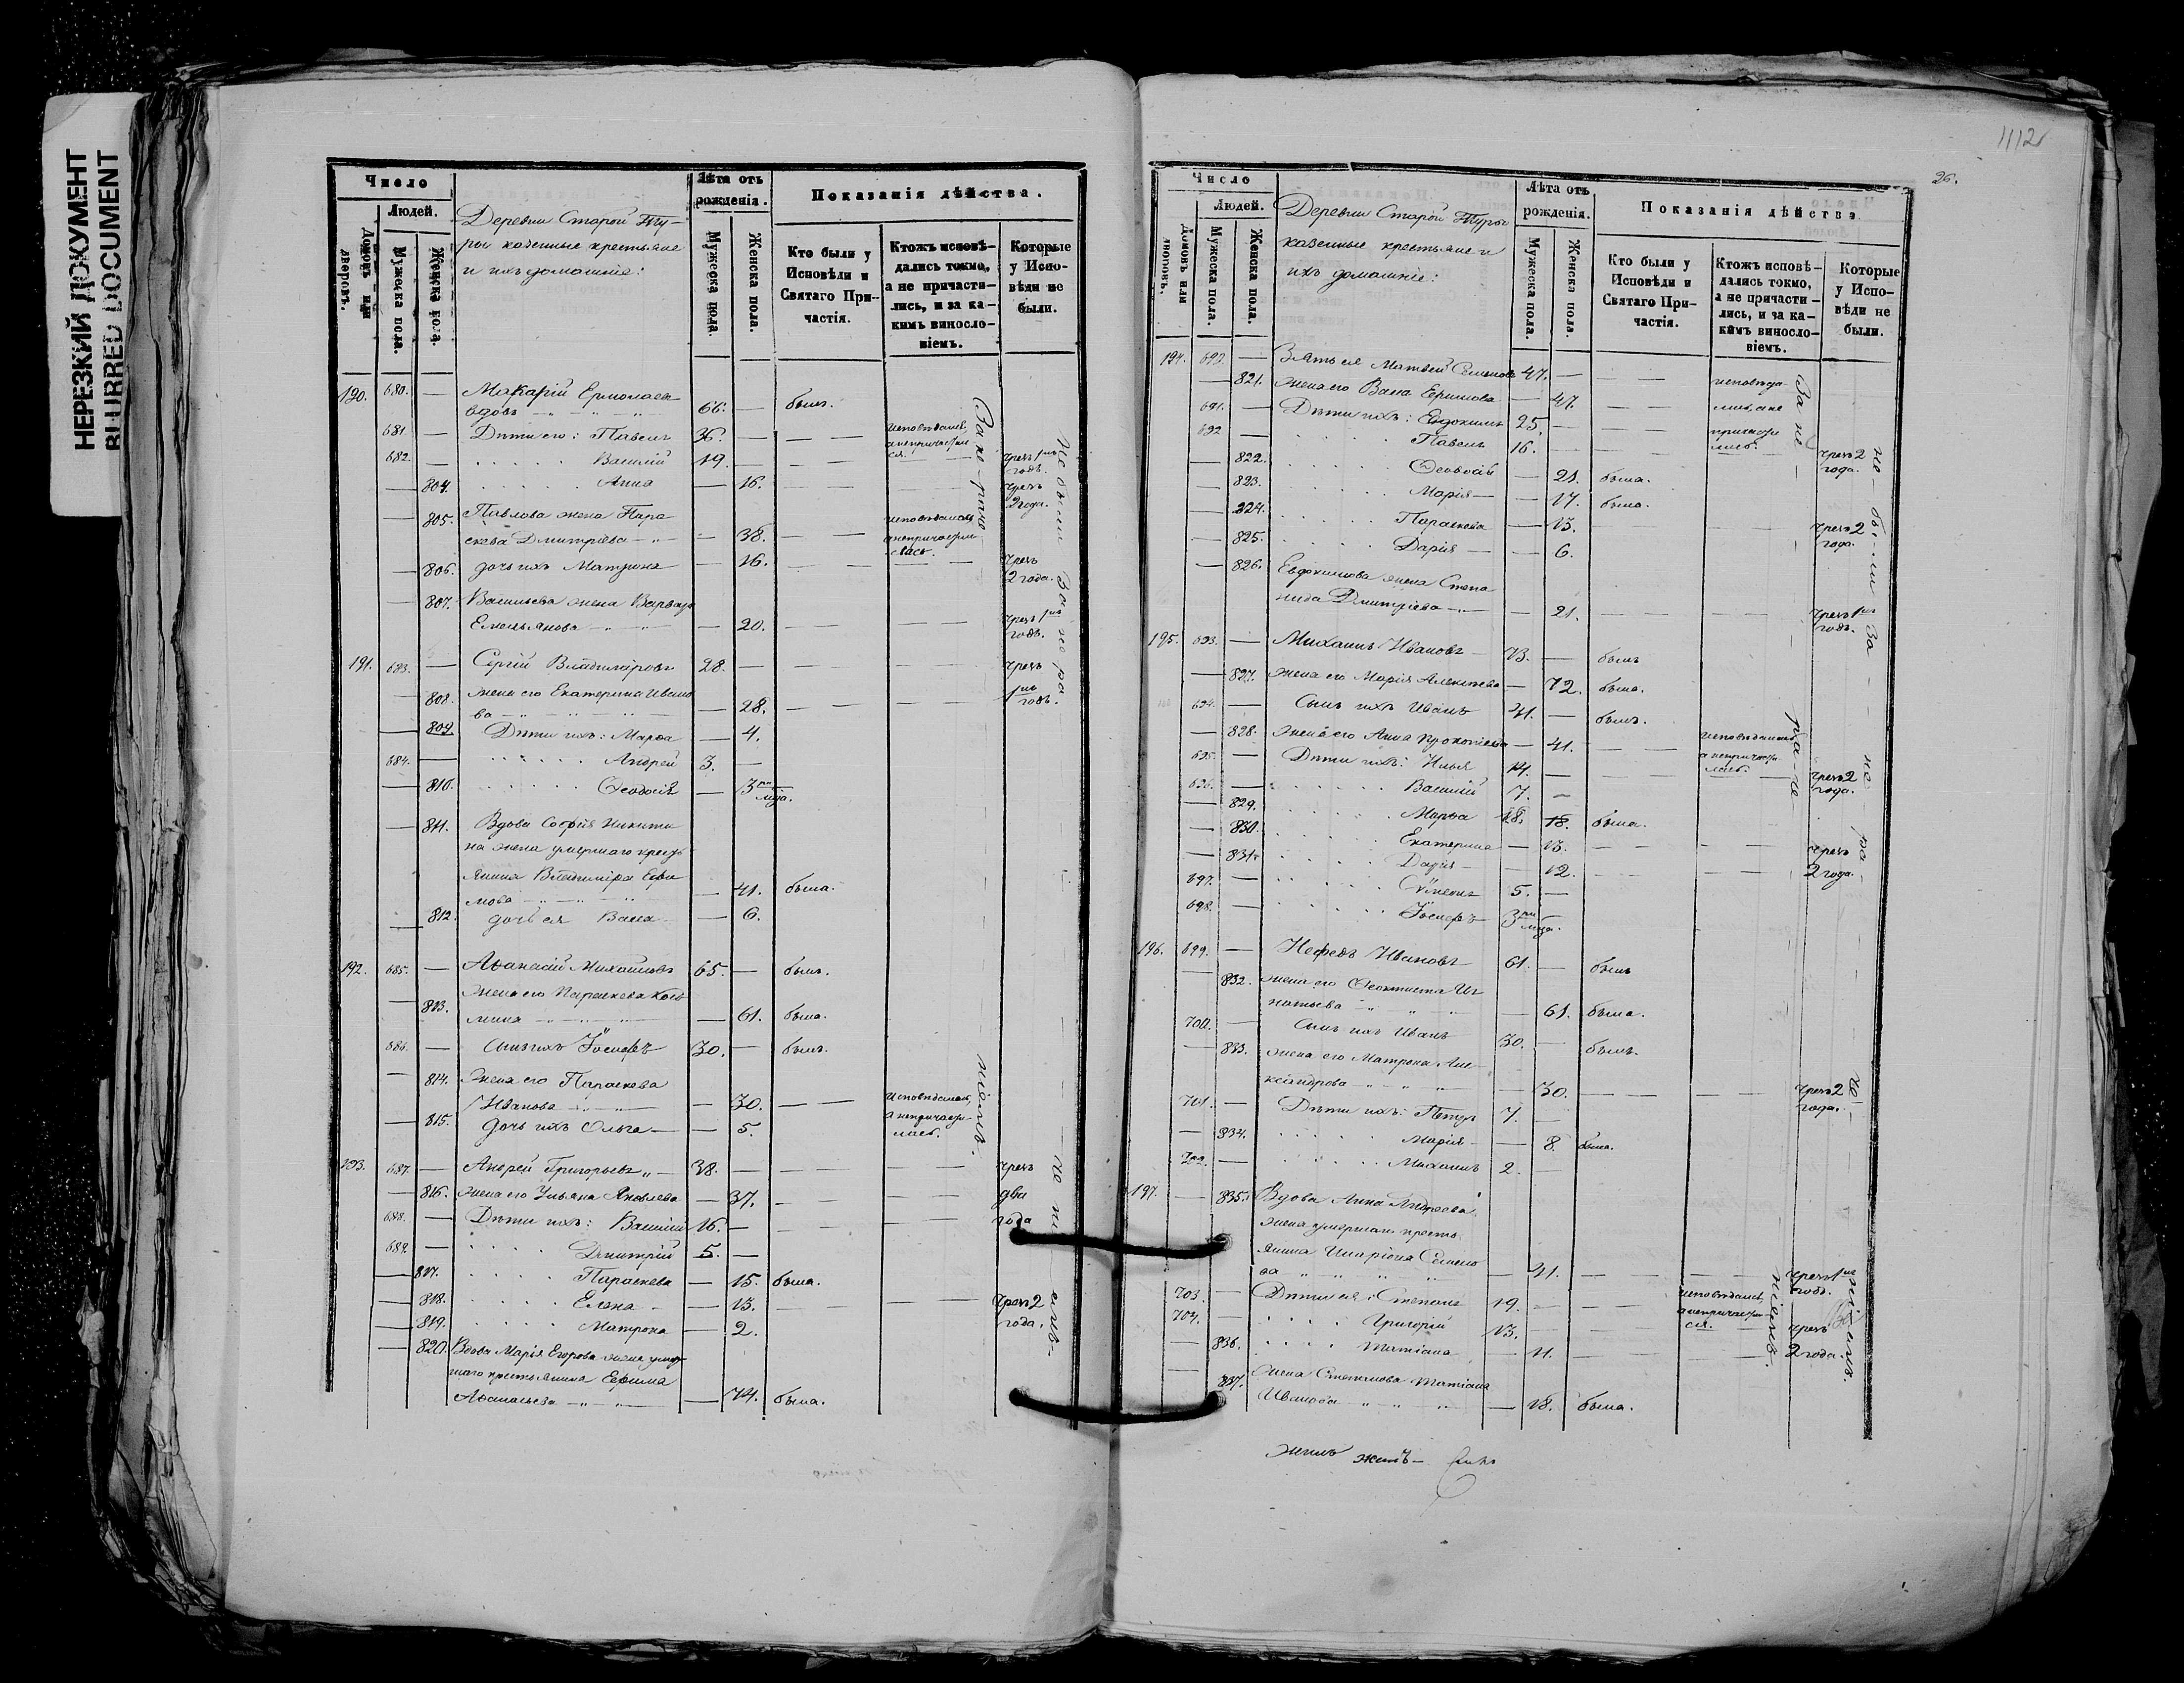 НЕРЕЗКИЙ ДОКУМЕНТ
BLURRED DOCUMENT
Число
Людей.
Домовъ или дворовъ.
Мужеска пола.
Женска пола.
Деревни Старой
казенные крестьяне
и ихъ домашніе:
Лѣта отъ рожденія.
Мужеска пола.
Женска пола.
Показанія дѣйства.
Кто были у Исповѣди и Святаго Причастія.
Ктожъ исповѣдались токмо, а не причастились, и за какимъ винословіемъ.
Которые у Исповѣди не были.
190. 680. — Макарій Ермолаевъ
вдовъ 66. — былъ.
681 — Дѣти его: Павелъ 36. — исповѣдался, а не причастился.
682. — Василій 19. — чрезъ 1нъ годъ.
— 804. Анна — 16. чрезъ 2 года.
— 805. Павлова жена Пара-
скева Дмитріева — 38. исповѣдалась, а не причастилась.
— 806. дочь ихъ Матрона — 16. чрезъ 2 года.
— 807. Васильева жена Варвара
Емельянова — 20. чрезъ 1нъ годъ.
191. 683. — Сергій Владиміровъ 28. — чрезъ
— 808. жена его Екатерина Ивано-
ва — 28. 1нъ годъ.
— 809. Дѣти ихъ: Марѳа — 4.
684. — Андрей 3. —
— 810. Ѳеодосія — 3 мца.
— 811. Вдова Софія Никити-
на жена умершаго кресть-
янина Владиміра Ефи-
мова — 41. была.
— 812. дочь ея Васса — 6.
192. 685. — Аѳанасій Михайловъ 65. — былъ.
— 813. жена его Параскева Козь-
мина — 61. была.
686. — Сынъ ихъ Іосифъ 30. — былъ.
— 814. Жена его Параскева
Иванова — 30. исповѣдалась, а не причастилась.
— 815. Дочь ихъ Ольга — 5.
193. 687. — Андрей Григорьевъ 38. — чрезъ
— 816. жена его Ульяна Яковлева — 37. два
688. — Дѣти ихъ: Василій 16. — года
689. — Дмитрій 5. —
— 817. Параскева — 15. была.
— 818. Елена — 13. чрезъ 2 года.
— 819. Матрона — 2.
— 820. Вдова Марія Егорова жена умер-
шаго крестьянина Ефима
Аѳанасьева — 74. была.
1112
26.
Число
Людей.
Домовъ или дворовъ.
Мужеска пола.
Женска пола.
Деревни Старой
казенные крестьяне и
ихъ домашніе:
Лѣта отъ рожденія.
Мужеска пола.
Женска пола.
Показанія дѣйства.
Кто были у Исповѣди и Святаго Причастія.
Ктожъ исповѣдались токмо, а не причастились, и за какимъ винословіемъ.
Которые у Исповѣди не были.
194. — Зять ея Матвей Семеновъ 47. —
— 821. жена его Васса Ефимова — 47.
691. — Дѣти ихъ: Евдокимъ 25.
692 — Павелъ 16. чрезъ 2 года.
— 822. Ѳеодосія — 21. была.
— 823. Марія — 17. была.
— 824. Параскева — 13. чрезъ 2 года.
— 825. Дарія — 6.
— 826. Евдокимова жена Степа-
нида Дмитріева — 21. чрезъ 1нъ годъ.
195. 693. — Михаилъ Ивановъ 73. — былъ
— 827. жена его Марія Алексѣева — 72. была.
694. — Сынъ ихъ Иванъ 41. — былъ.
— 828. жена его Анна Прокопіева — 41. исповѣдалась, а не причастилась.
695. — Дѣти ихъ: Илья 14. — чрезъ 2 года.
696. — Василій 7. —
— 829. Марѳа 18. была.
— 830. Екатерина — 13. чрезъ
— 831. Дарія — 12. 2 года.
697. — Симеонъ 5. —
698. — Іосифъ 3 мца.
196. 699. — Нефедъ Ивановъ 61. — былъ
— 832. жена его Ѳеоктиста Иг-
натьева — 61. была.
700. — Сынъ ихъ Иванъ 30. — былъ.
— 833. жена его Матрона Але-
ксандрова — 30. чрезъ 2 года.
701. — Дѣти ихъ: Петръ 7. —
— 834. Марія — 8. была.
702. — Михаилъ 2. —
197. — 835. Вдова Анна Андреева
жена умершаго кресть-
янина Иларіона Семено-
ва — 41. чрезъ 1нъ годъ.
703. — Дѣти ея: Степанъ 19. исповѣдался, а не причастился.
704. — Григорій 13. чрезъ
— 836. Татіана — 11. 2 года.
— 837. Жена Степанова Татіана
Иванова — 18. была.